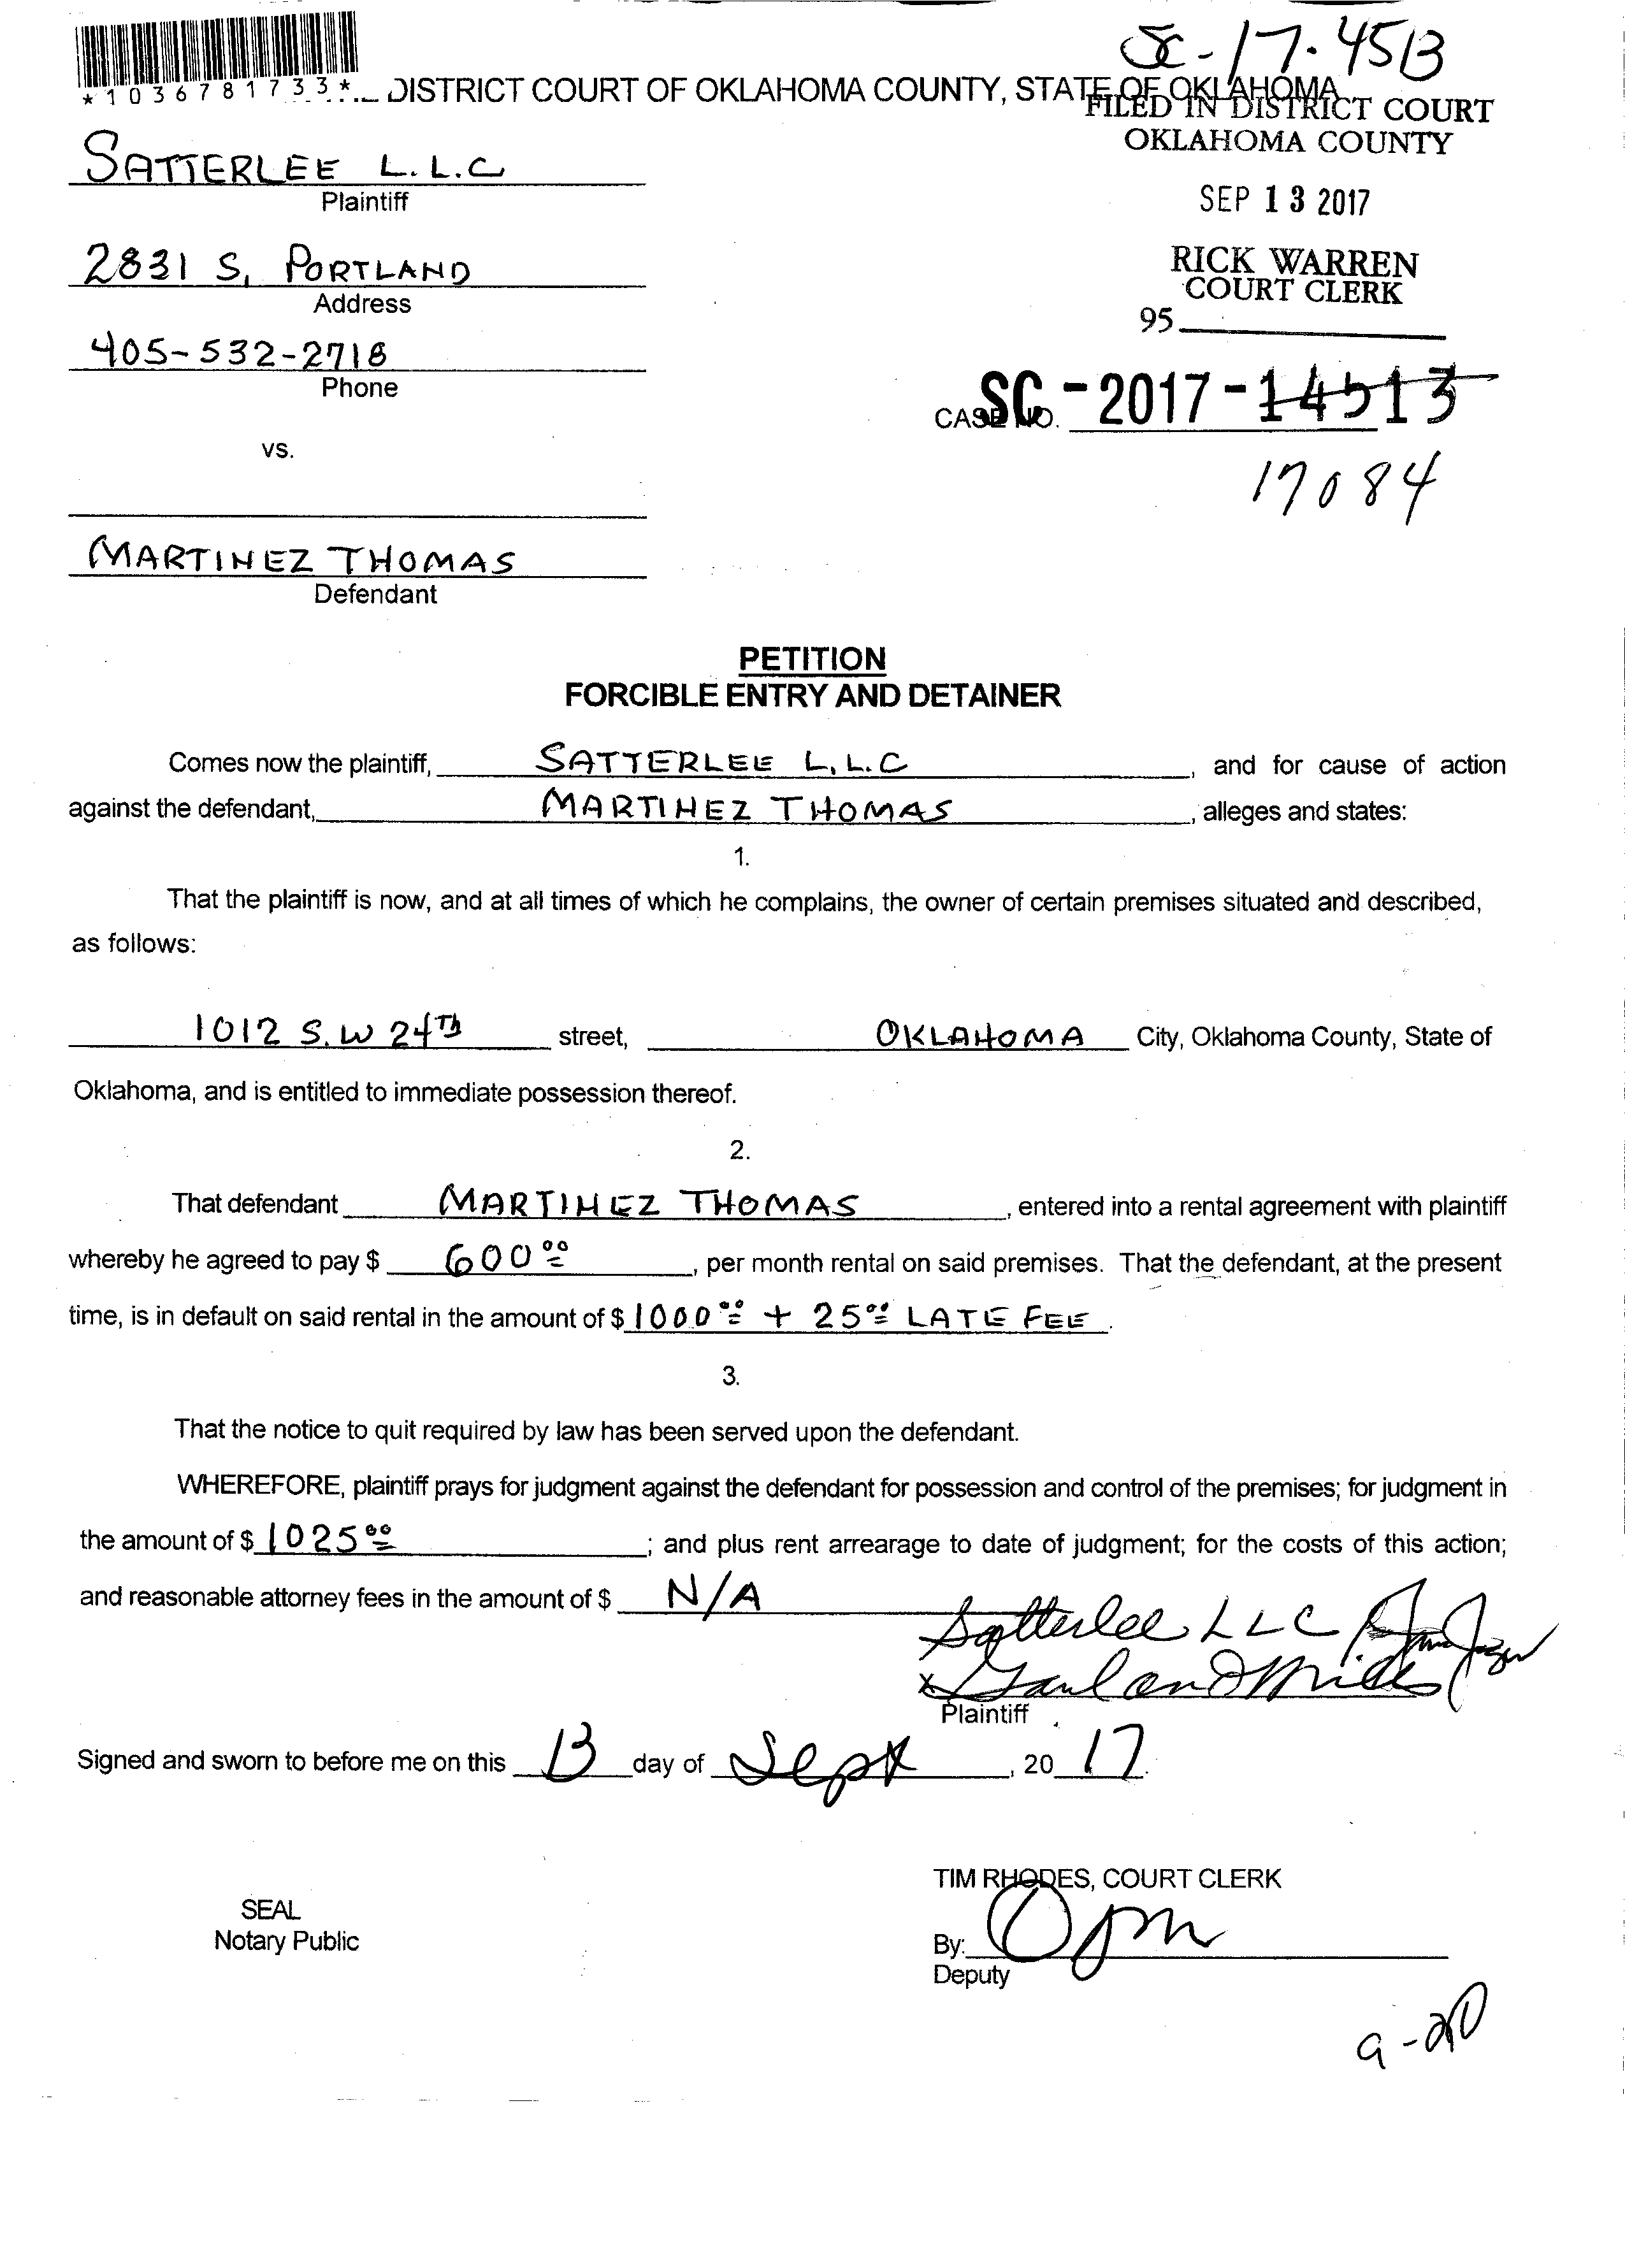 SC-17-4513
*1036781733*
DISTRICT COURT OF OKLAHOMA COUNTY, STATE OF OKLAHOMA
FILED IN DISTRICT COURT
OKLAHOMA COUNTY
SATTERLEE L.L.C
Plaintiff
SEP 13 2017
2831 S. PORTLAND
Address
RICK WARREN
COURT CLERK
95
405-532-2718
Phone
CASE NO. SC-2017-14513
vs.
17084
MARTINEZ THOMAS
Defendant
PETITION
FORCIBLE ENTRY AND DETAINER
Comes now the plaintiff, SATTERLEE L.L.C, and for cause of action
against the defendant, MARTINEZ THOMAS, alleges and states:
1.
That the plaintiff is now, and at all times of which he complains, the owner of certain premises situated and described,
as follows:
1012 S.W 24TH street, OKLAHOMA City, Oklahoma County, State of
Oklahoma, and is entitled to immediate possession thereof.
2.
That defendant MARTINEZ THOMAS, entered into a rental agreement with plaintiff
whereby he agreed to pay $ 600 00, per month rental on said premises. That the defendant, at the present
time, is in default on said rental in the amount of $ 1000 00 + 25 00 LATE FEE.
3.
That the notice to quit required by law has been served upon the defendant.
WHEREFORE, plaintiff prays for judgment against the defendant for possession and control of the premises; for judgment in
the amount of $ 1025 00; and plus rent arrearage to date of judgment; for the costs of this action;
and reasonable attorney fees in the amount of $ N/A
Satterlee LLC
x Garland Mills
Plaintiff
Signed and sworn to before me on this 13 day of Sept, 20 17.
TIM RHODES, COURT CLERK
SEAL
Notary Public
By:
Deputy
9-20